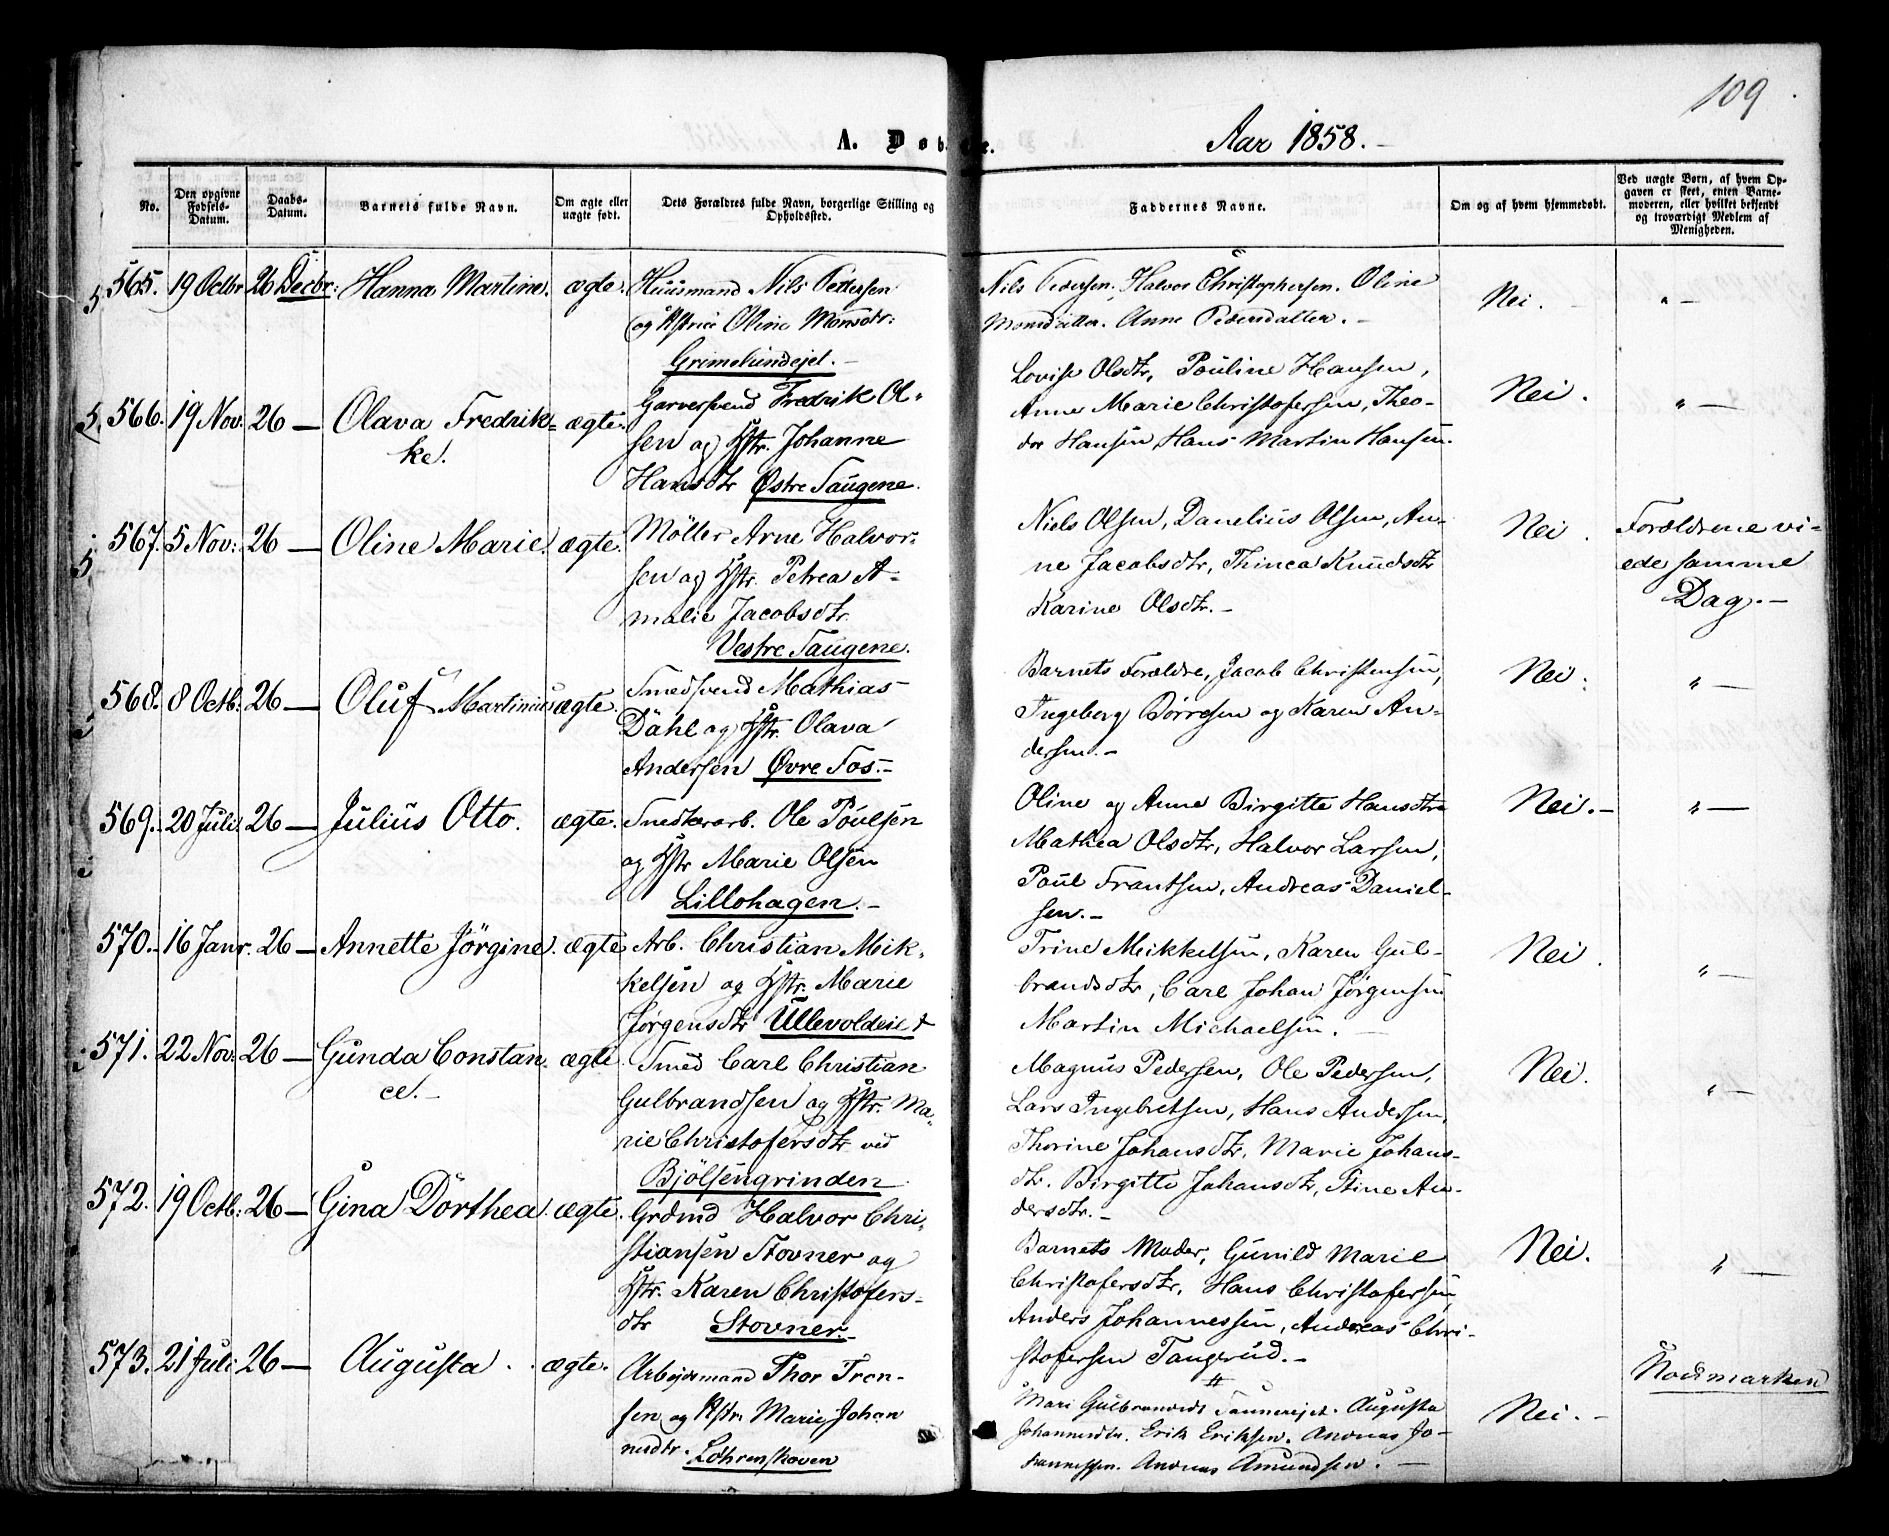 109
A. Døbte.
Aar 1858.
No.
Den opgivne Fødsels-Datum.
Daabs-Datum.
Barnets fulde Navn.
Om ægte eller uægte født.
Dets Forældres fulde Navn, borgerlige Stilling og Opholdssted.
Faddernes Navne.
Om og af hvem hjemmedøbt.
Ved uægte Børn, af hvem Opgaven er skeet, enten Barnemoderen, eller hvilket bekjendt og troværdigt Medlem af Menigheden.
565. 19 Octbr 26 Decbr: Hanna Martine. ægte. Huusmand Nils Pettersen
og Hstrue Oline Monsdtr:
Grimelundejet.
Nils Pedersen. Halvor Christophersen. Oline
Monsdatter. Anne Pedersdatter. –
Nei. " –
566. 19 Nov. 26 — Olava Fredrik=
ke. ægte. Garversvend Fredrik Ol-
sen og Hstr. Johanne
Hansdtr Østre Taugene.
Lovise Olsdtr, Pouline Hansen,
Anne Marie Christofersen, Theo-
dor Hansen, Hans Martin Hansen.
Nei. " —
567. 5 Nov: 26 — Oline Marie. ægte. Möller Arne Halvor-
sen og Hstr. Petrea A-
malie Jacobsdtr.
Vestre Taugene.
Niels Olsen, Danelius Olsen, An-
ne Jacobsdtr, Thinea Knudsdtr
Karine Olsdtr. –
Nei. Forældrene vi-
ede samme
Dag. –
568. 8 Octb: 26 — Oluf Martinius ægte. Smedsvend Mathias
Dahl og Hstr. Olava
Andersen Øvre Fos. –
Barnets Forældre, Jacob Christensen,
Ingeborg Börresen og Karen An-
dersen. –
Nei: " —
569. 20 Juli 26 — Julius Otto. ægte. Snedkerarb. Ole Poulsen
og Hstr Marie Olsen
Lillohagen. –
Oline og Anne Birgitte Hansdtre
Mathea Olsdtr, Halvor Larsen,
Poul Frantsen, Andreas Daniel-
sen. –
Nei. – " —
570. 16 Janr. 26 — Annette Jörgine. ægte Arb. Christian Mik-
kelsen og Hstr. Marie
Jørgensdtr Ullevoldeiet
Trine Meikkelsen, Karen Gul-
brandsdtr, Carl Johan Jørgensen
Martin Michaelsen. —
Nei. " —
571. 22 Nov: 26 — Gunda Constan
ce. – ægte. Smed Carl Christian
Gulbrandsen og Hstr. Ma-
rie Christofersdtr ved
Bjölsengrinden
Magnus Pedersen, Ole Pedersen,
Lars Ingebretsen, Hans Andersen,
Thorine Johansdtr, Marie Johans-
dtr. Birgitte Johansdtr, Stine An-
dersdtr. –
Nei. " —
572. 19 Octb: 26 — Gina Dorthea. ægte. Grdmd Halvor Chri-
stiansen Stovner og
Hstr. Karen Christofers-
dtr Stovner. –
Barnets Moder, Gunild Marie
Christofersdtr, Hans Christofersen,
Anders Johannessen, Andreas Chri-
stofersen Tangerud. –
Nei. " —
573. 21 Juli 26 — Augusta. ægte. Arbeidsmand Thor Tron-
sen og Hstr. Marie Johan
nesdtr. Lohrenskoven
Mari Gulbrandsdt Taunerejet. Augusta
Johannesdtr. Erik Eriksen. Andreas Jo-
hannessen. Andreas Amundsen. —
Nei. – Nordmarken